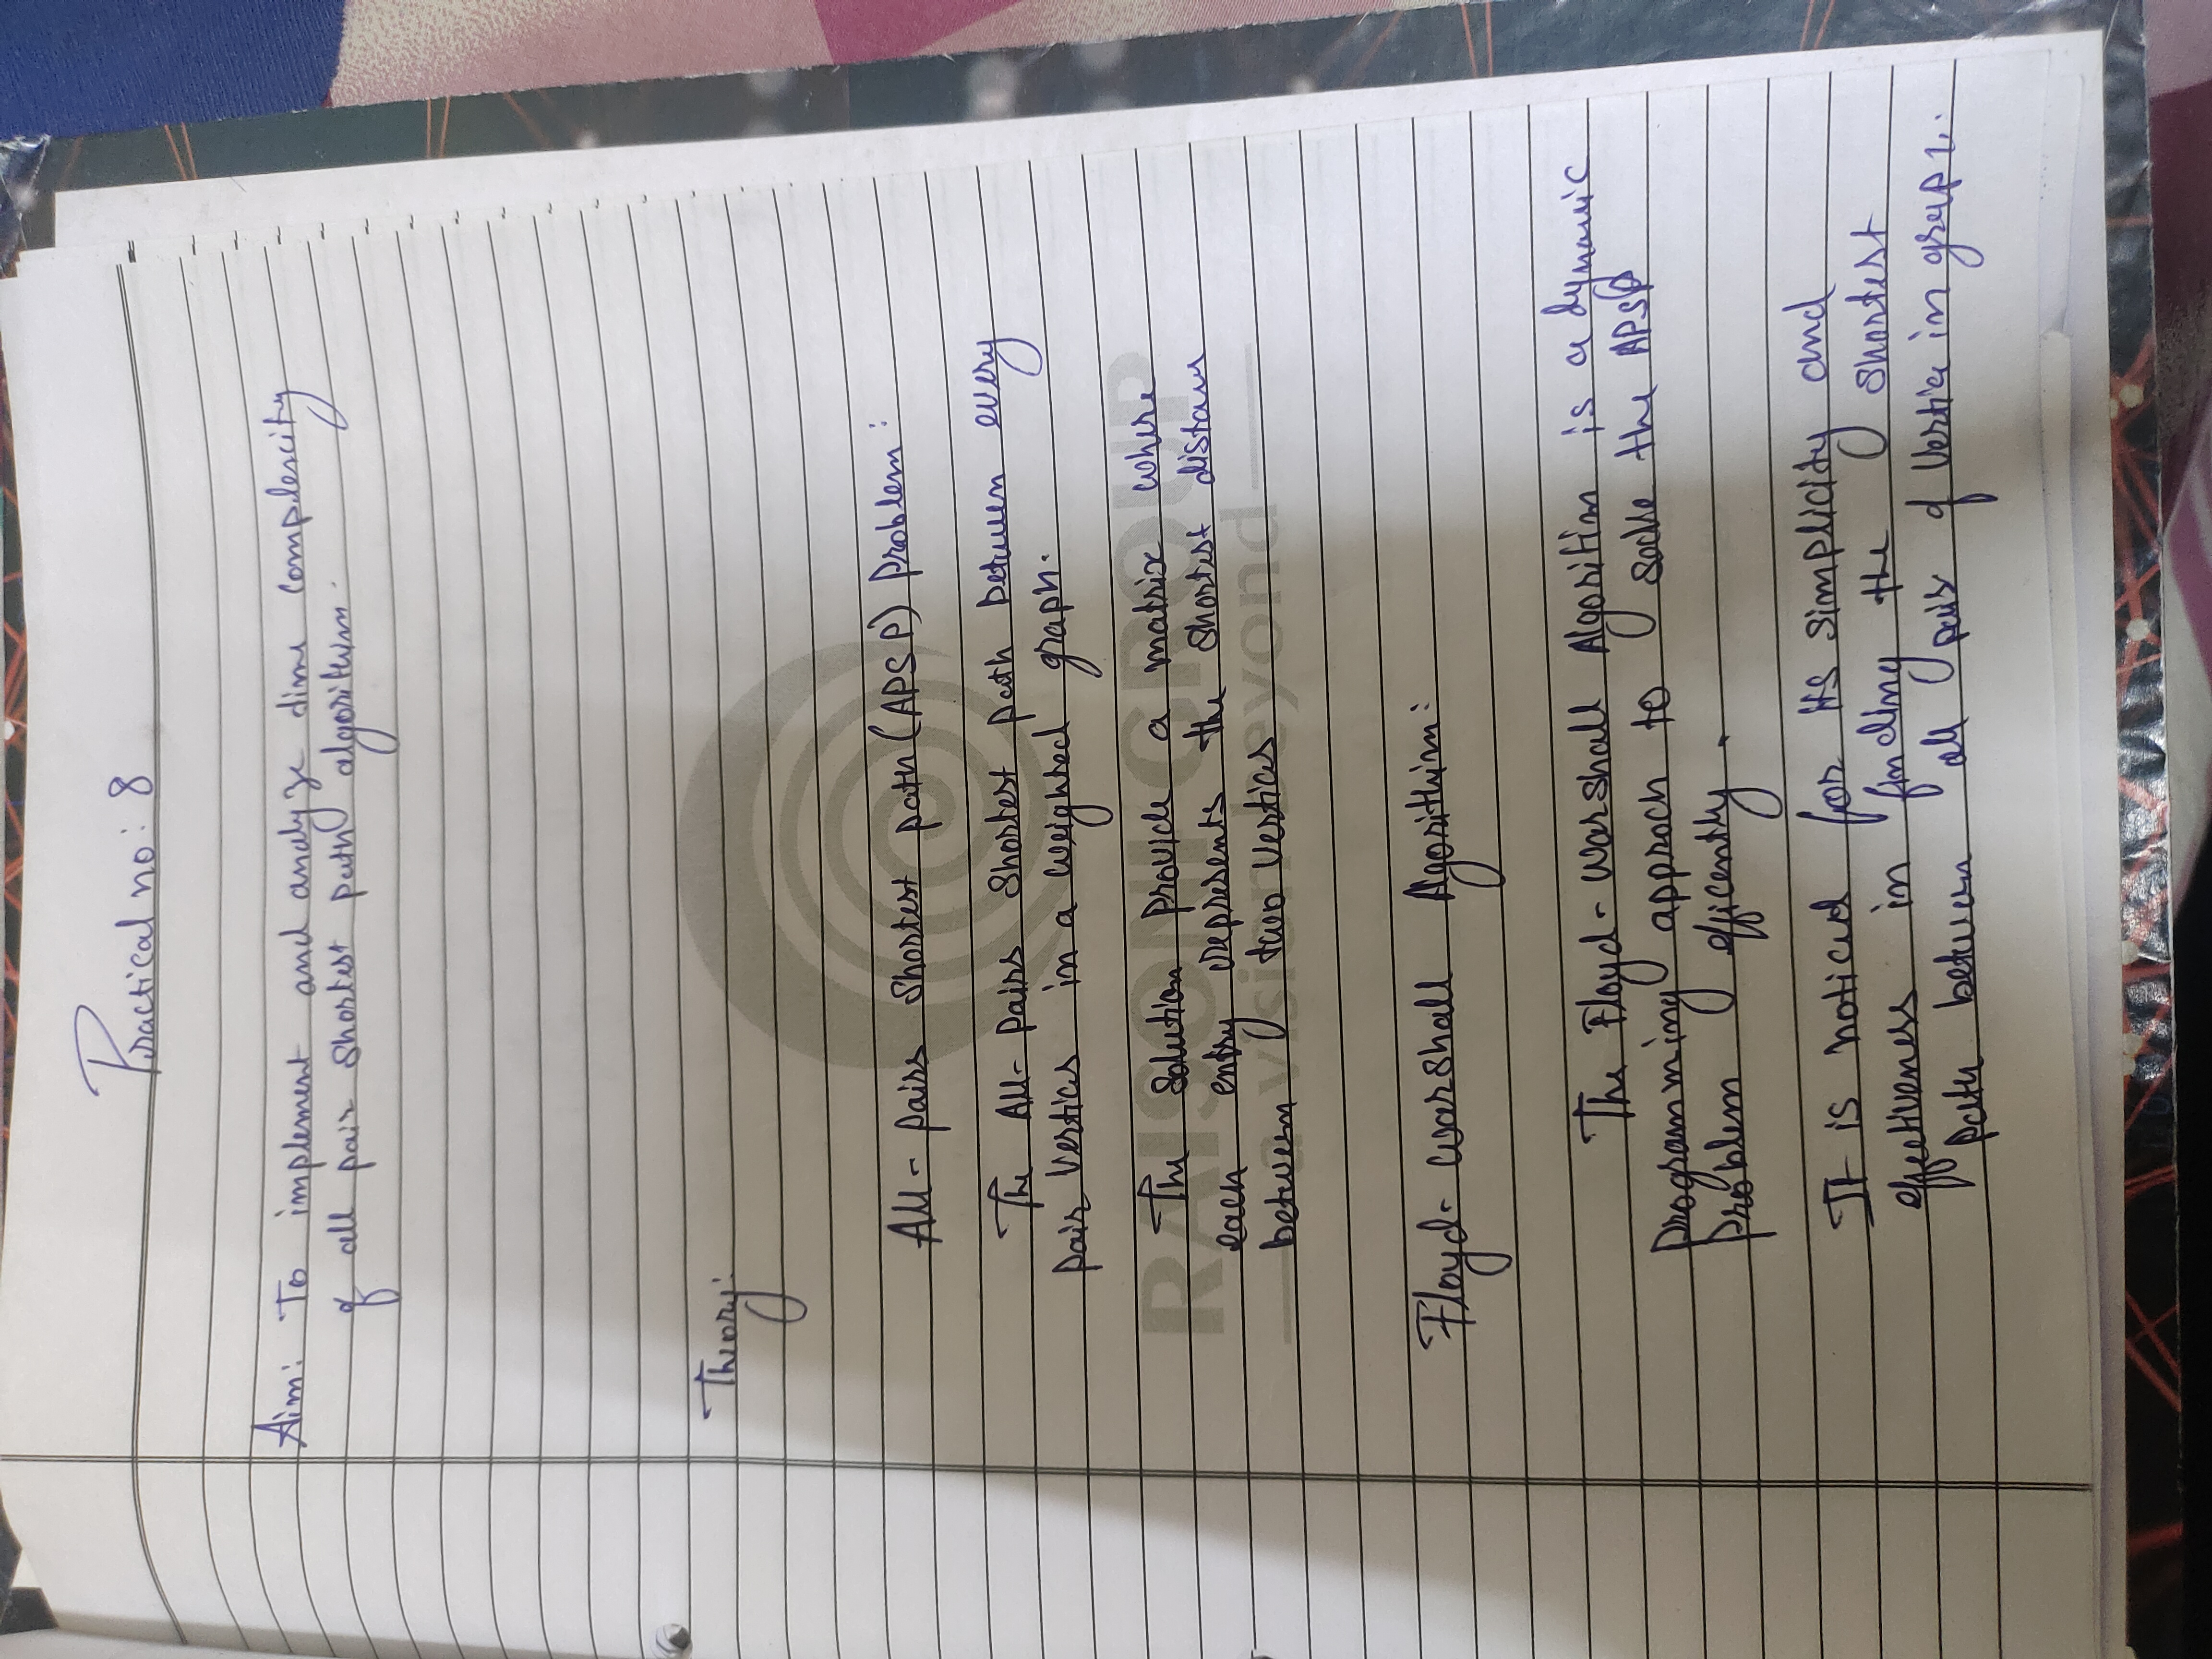 Practical no: 8
Aim: To implement and analyze time complexcity
of all pair shortest path algorithim.
Theory:
All-pairs shortest path (APSP) Problem:
The All-pairs shortest path between every
pair vertices in a weighted graph.
The solution provide a matrix where
each entry represents the shortest distance
between two vertices
RAISONI GROUP
a vision beyond
Floyd-warshall Algorithim:
The Floyd-Warshall Algorithm is a dynamic
programming approch to the APSP
Problem efficently.
It is noticed for its simplicity and
effectiveness in finding the shortest
path between all pair of vertice in graph.